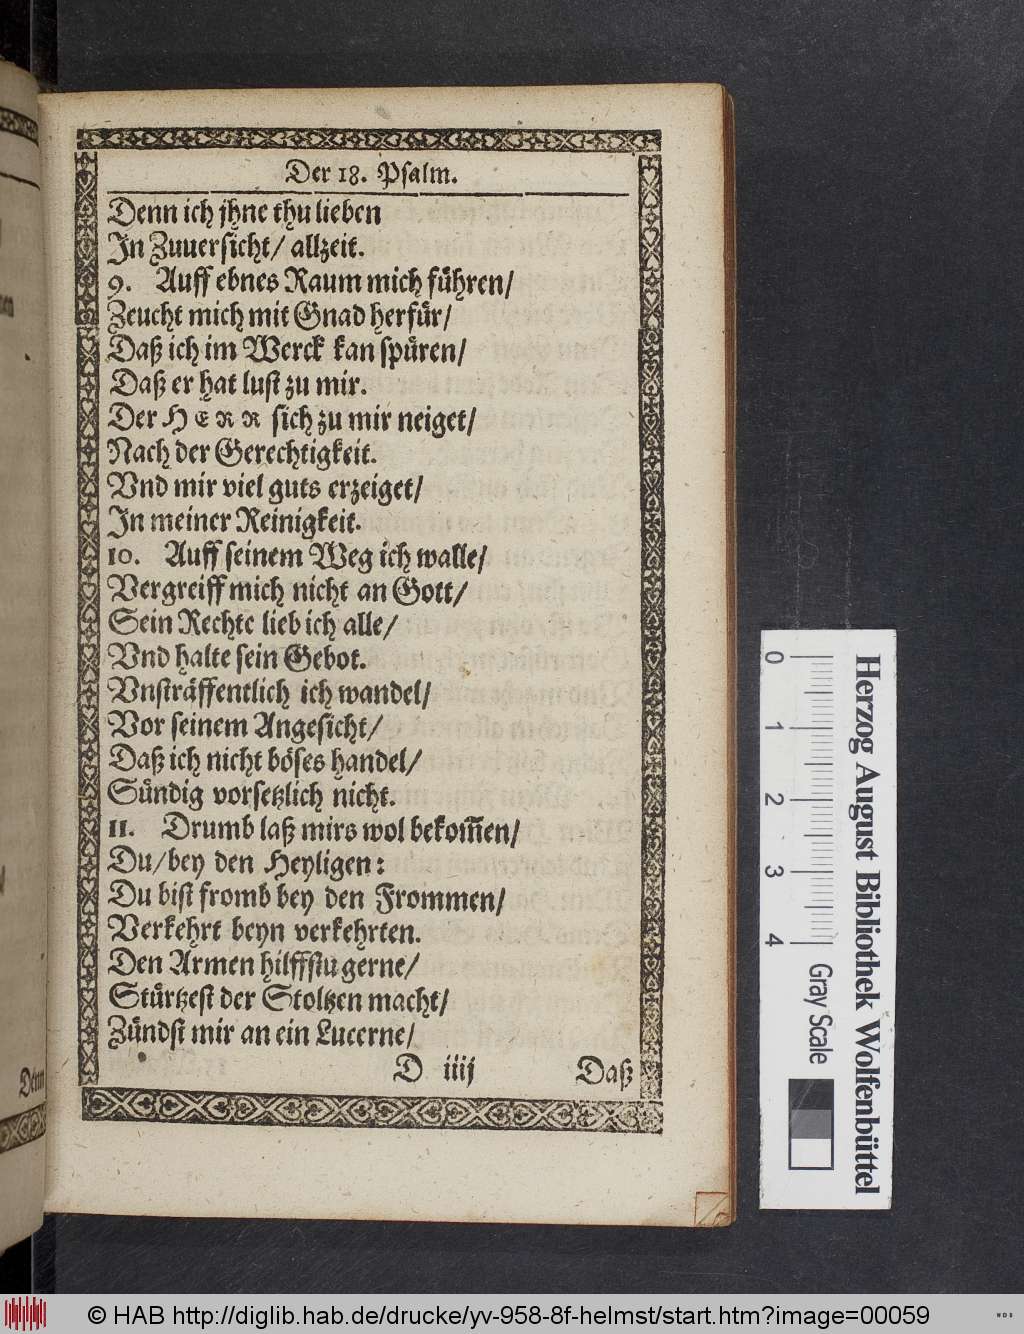 Der 18. Psalm.
Denn ich jhne thu lieben
In Zuuersicht/ allzeit.
9. Auff ebnes Raum mich führen/
Zeucht mich mit Gnad herfür/
Daß ich im Werck kan spüren/
Daß er hat lust zu mir.
Der HERR sich zu mir neiget/
Nach der Gerechtigkeit.
Vnd mir viel guts erzeiget/
In meiner Reinigkeit.
10. Auff seinem Weg ich walle/
Vergreiff mich nicht an Gott/
Sein Rechte lieb ich alle/
Vnd halte sein Gebot.
Vnsträffentlich ich wandel/
Vor seinem Angesicht/
Daß ich nicht böses handel/
Sündig vorsetzlich nicht.
11. Drumb laß mirs wol bekom̃en/
Du/bey den Heyligen:
Du bist fromb bey den Frommen/
Verkehrt beyn verkehrten.
Den Armen hilffstu gerne/
Stürtzest der Stoltzen macht/
Zündst mir an ein Lucerne/
D iiij Daß
Denn
0 1 2 3 4
Herzog August Bibliothek Wolfenbüttel
Gray Scale
© HAB http://diglib.hab.de/drucke/yv-958-8f-helmst/start.htm?image=00059
WDB